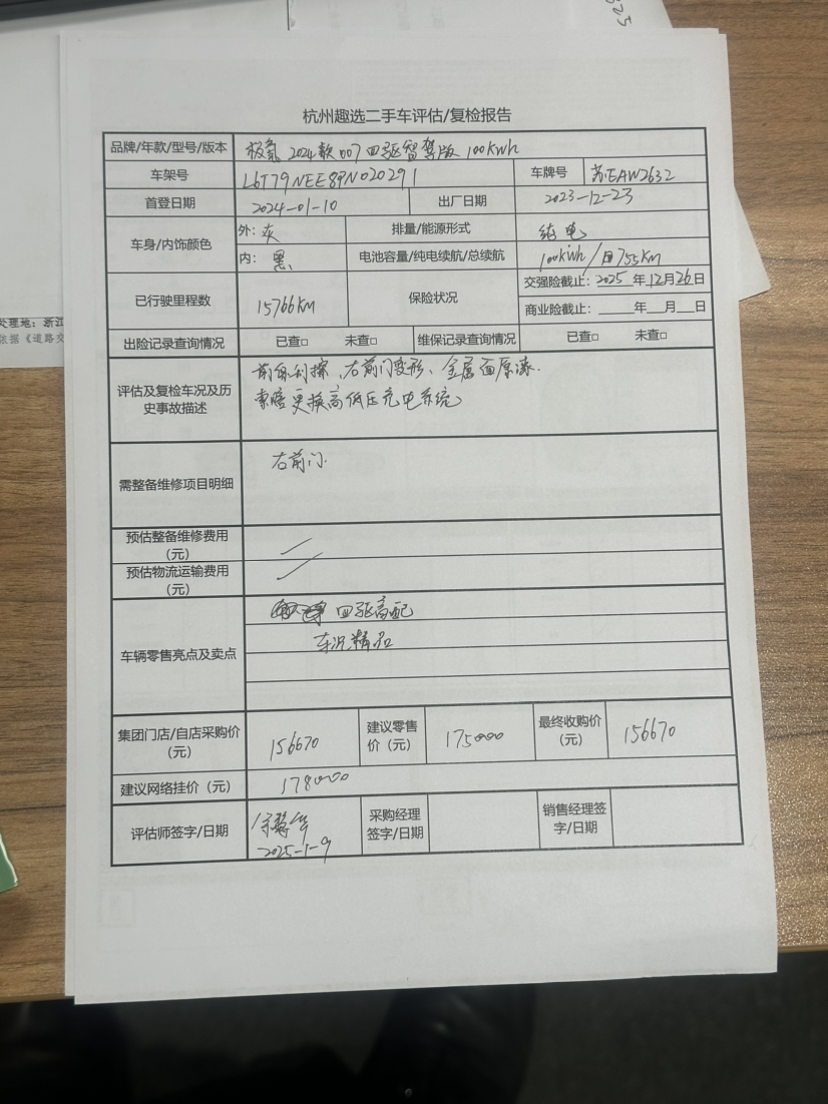 杭州趣选二手车评估/复检报告
品牌/年款/型号/版本 极氪 2024款 007 四驱智驾版 100kWh
车架号 L6T79NEE8PN020291 车牌号 苏EAW2632
首登日期 2024-01-10 出厂日期 2023-12-23
车身/内饰颜色 外：灰 排量/能源形式 纯电
内：黑 电池容量/纯电续航/总续航 100kWh/ 755KM
已行驶里程数 15766KM 保险状况 交强险截止：2025年12月26日
商业险截止：____年__月__日
出险记录查询情况 已查□ 未查□ 维保记录查询情况 已查□ 未查□
评估及复检车况及历史事故描述 前保刮擦、右前门变形、金属面原漆.
更换高低压充电系统
需整备维修项目明细 右前门
预估整备维修费用（元）
预估物流运输费用（元）
车辆零售亮点及卖点 四驱高配
车况精品
集团门店/自店采购价（元） 156670 建议零售价（元） 175000 最终收购价（元） 156670
建议网络挂价（元） 178000
评估师签字/日期 2025-1-9 采购经理签字/日期 销售经理签字/日期
处理地：浙江
依据《道路交